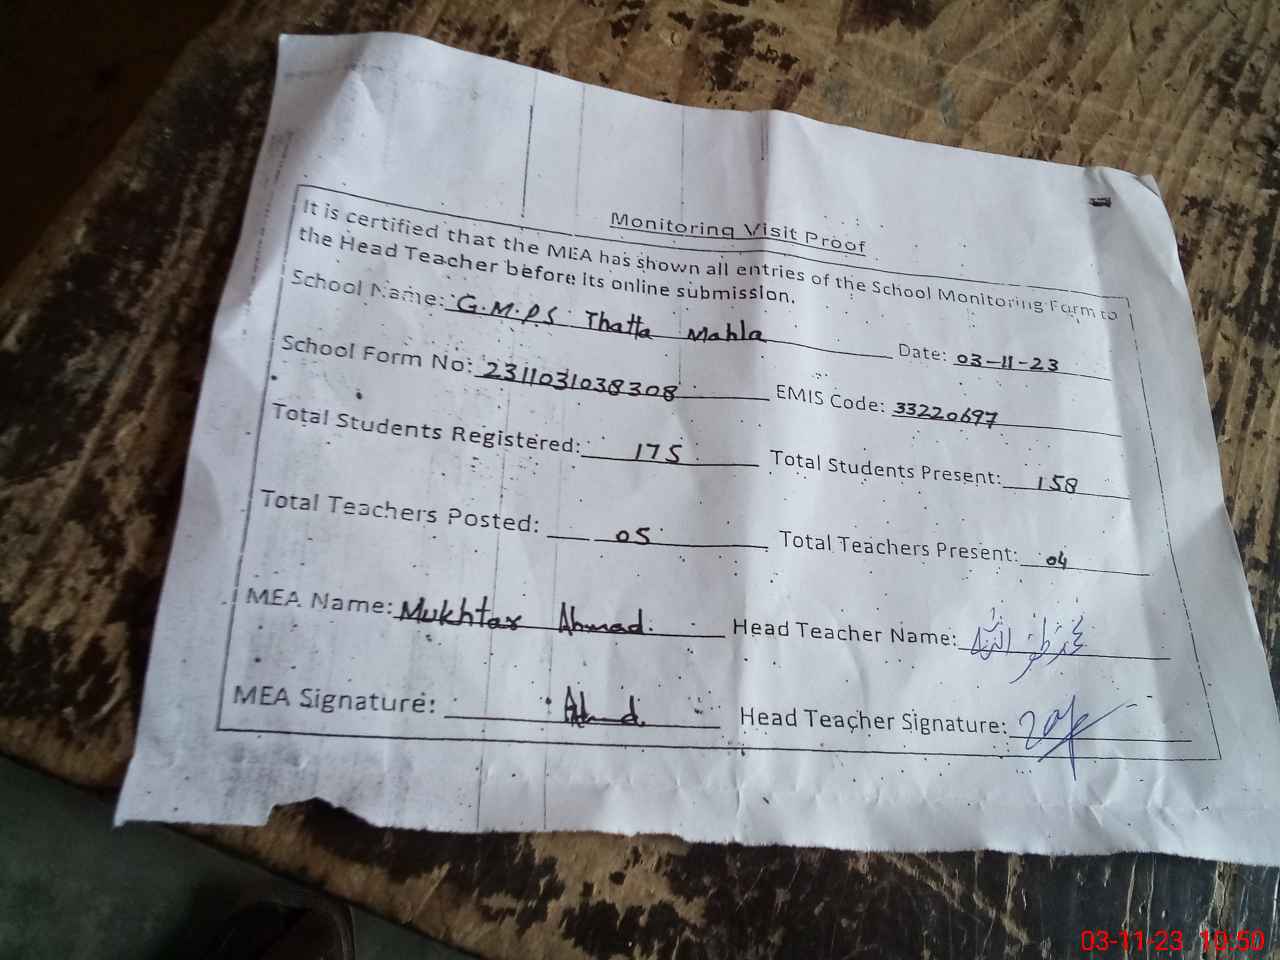 Monitoring Visit Proof
It is certified that the MEA has shown all entries of the School Monitoring Form to
the Head Teacher before its online submission.
School Name: G.M.P.S Thatta Mahla Date: 03-11-23
School Form No: 2311031038308 EMIS Code: 33220697
Total Students Registered: 175 Total Students Present: 158
Total Teachers Posted: 05 Total Teachers Present: 04
MEA Name: Mukhtar Ahmad. Head Teacher Name:
MEA Signature: Ahmd. Head Teacher Signature:
03-11-23 10:50